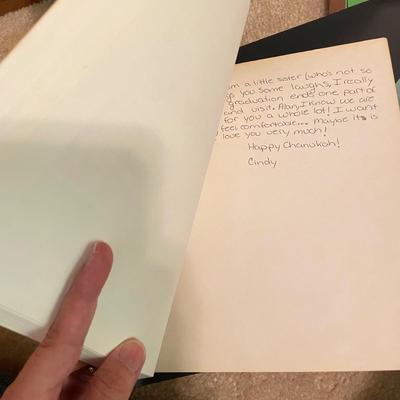 a little sister (who's not so
you some laughs, I really
graduation ends one part of
and visit. Alan, I know we are
for you a whole lot! I want
feel comfortable... maybe it's is
love you very much!
Happy Chanukah!
Cindy